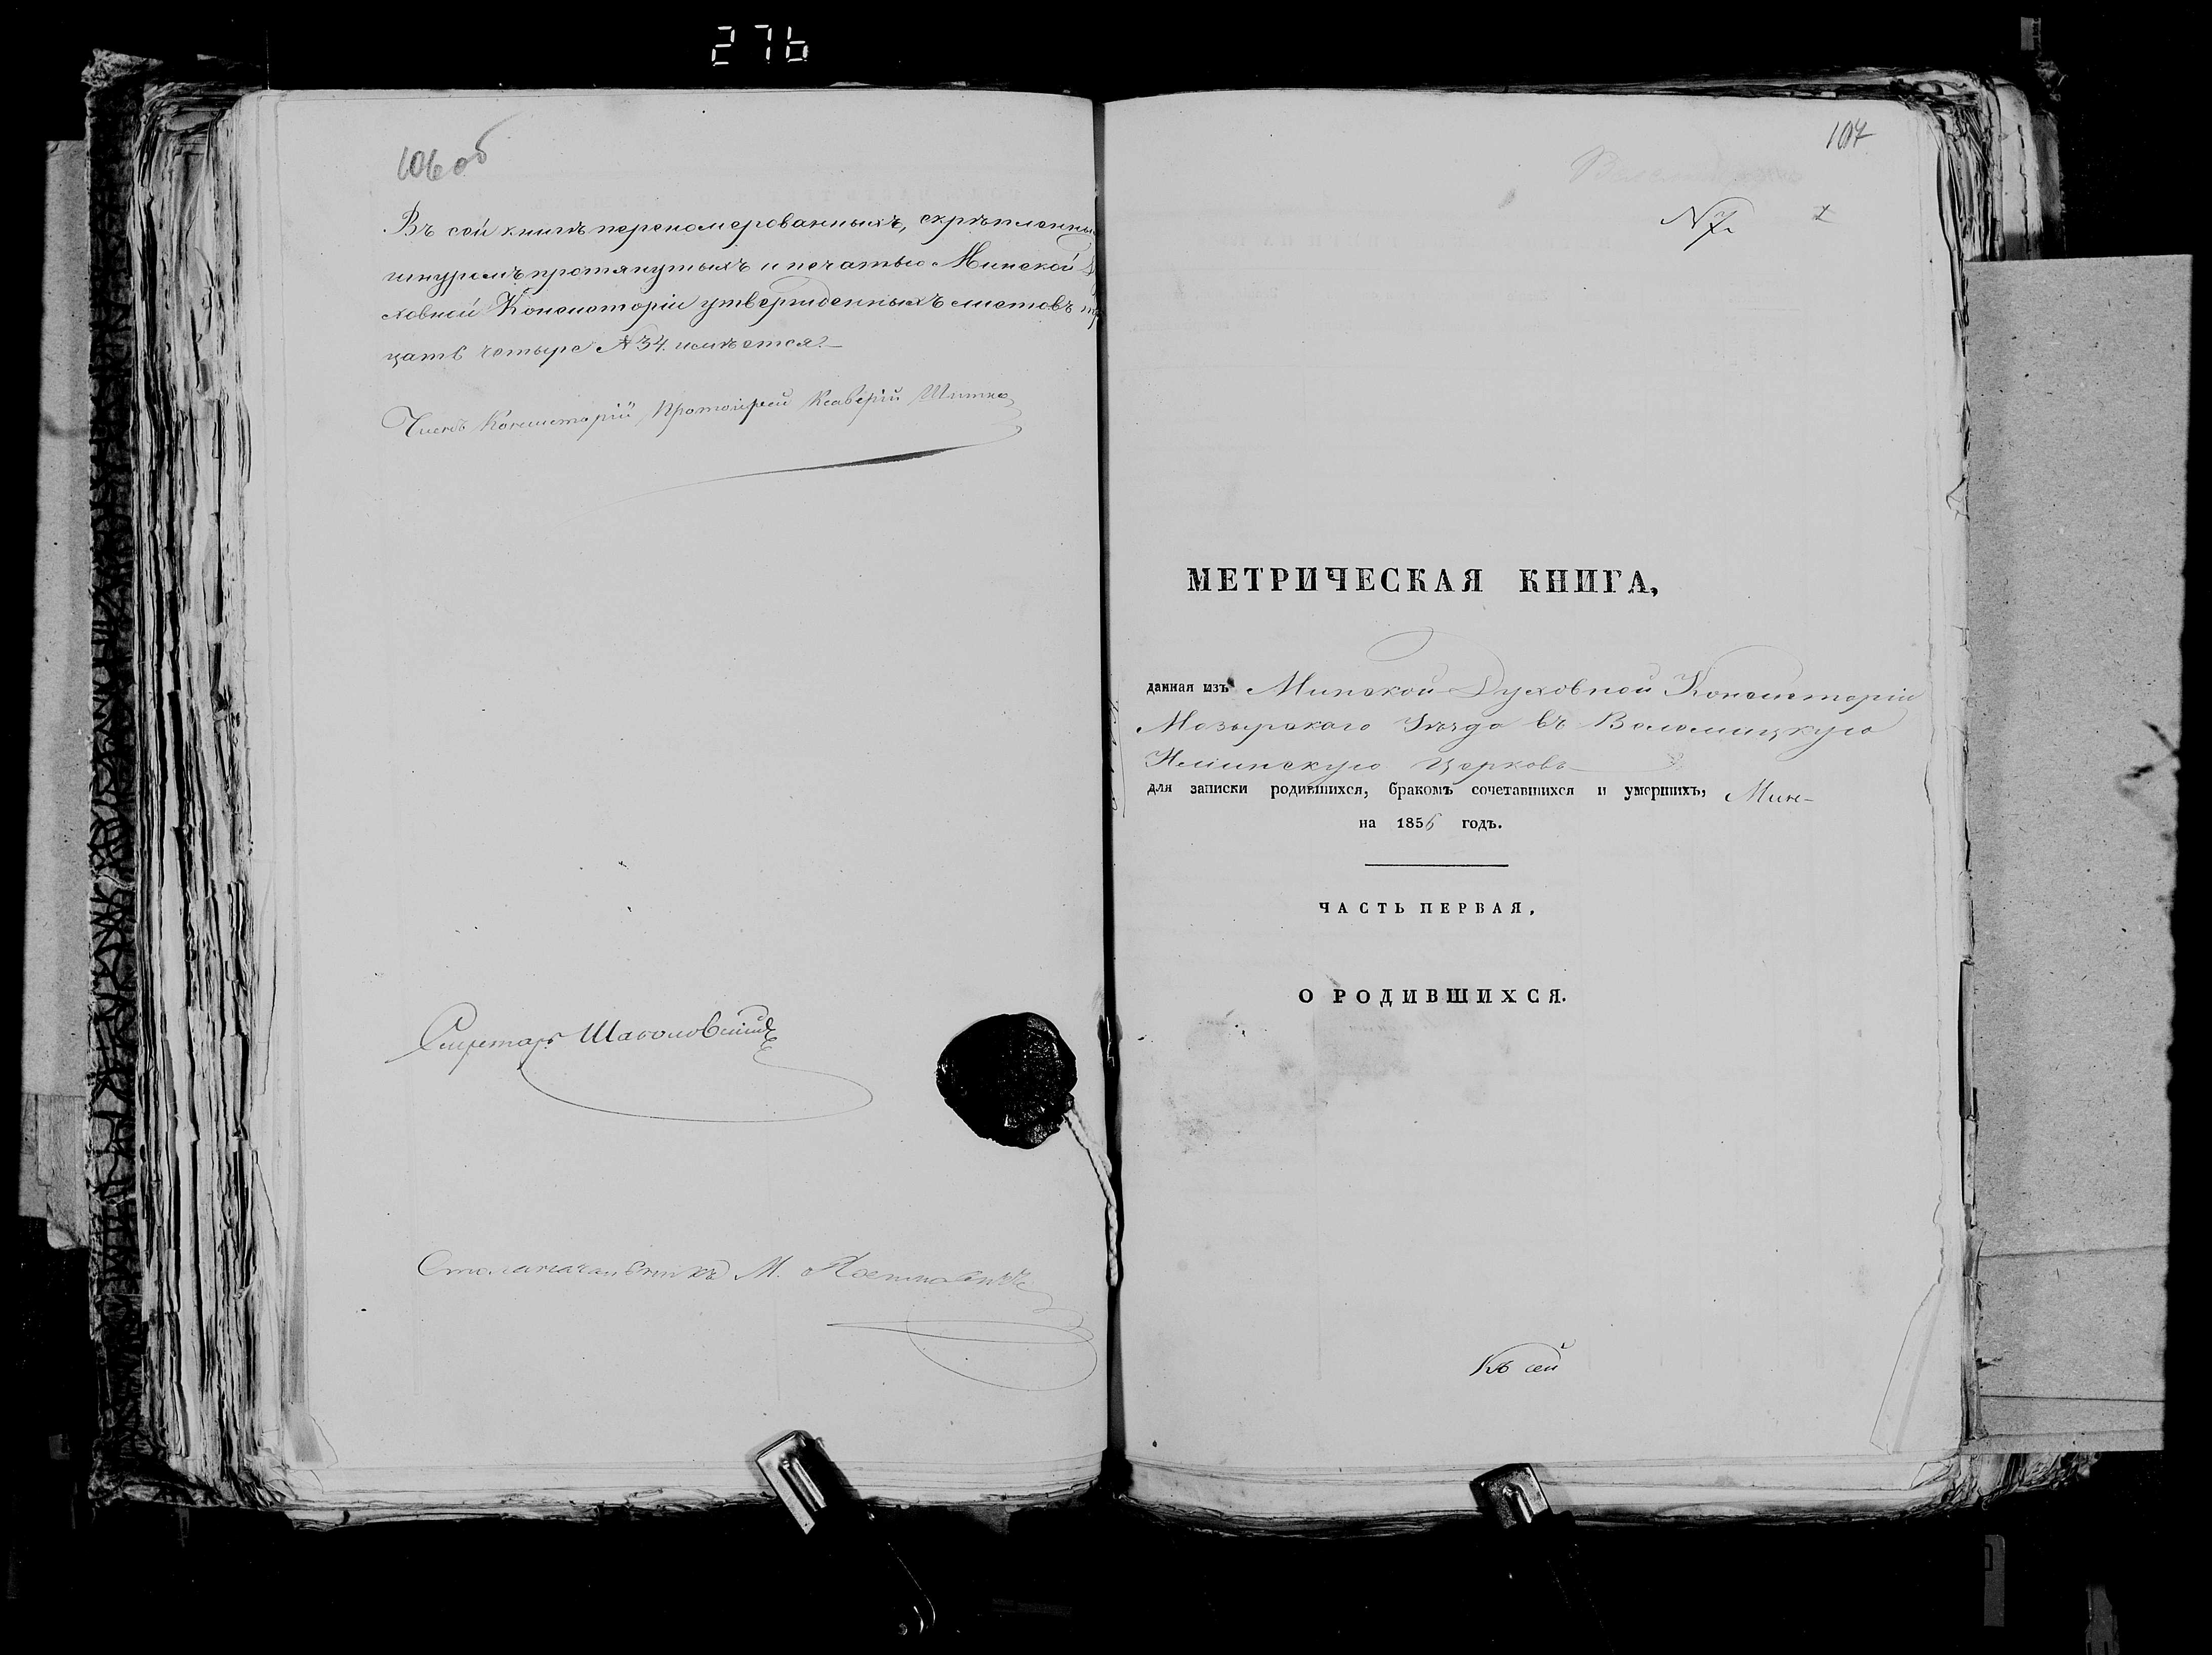 276
106 об
Въ сей книгѣ перенумерованныхъ, скрѣпленны
шнуромъ протянутыхъ и печатью Минской Ду
ховной Консисторіи утвержденныхъ листовъ тр
цать четыре № 34. имѣется.
Членъ Консисторіи Протоіерей Ксаверій
Секретарь
Столоначальникъ М.
107
N 7.
МЕТРИЧЕСКАЯ КНИГА,
данная изъ Минской Духовной Консисторіи
Мозырскаго Уѣзда въ
Ильинскую Церковь
для записки родившихся, бракомъ сочетавшихся и умершихъ, Мин-
на 1856 годъ.
ЧАСТЬ ПЕРВАЯ,
О РОДИВШИХСЯ.
Къ сей